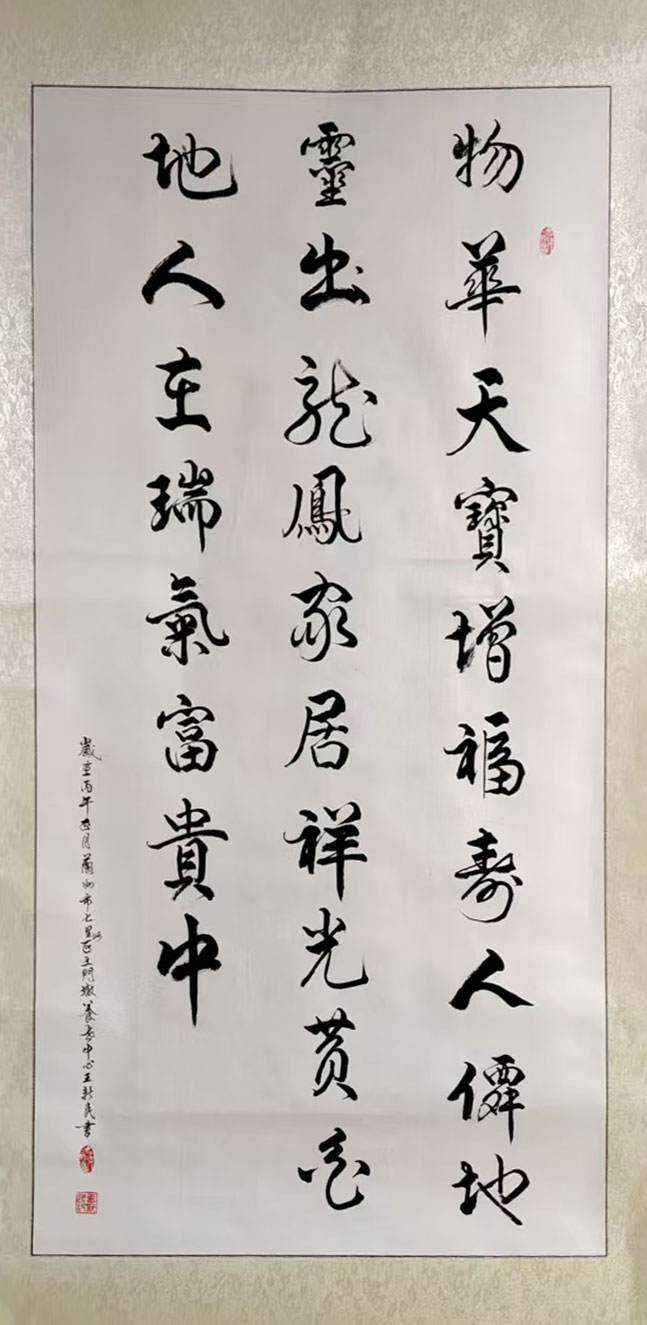 物華天寶增福壽人僊地
靈出龍鳳家居祥光黃金
地人在瑞氣富貴中
歲在丙午正月蘭州市七里河區土門墩養老中心王新民書